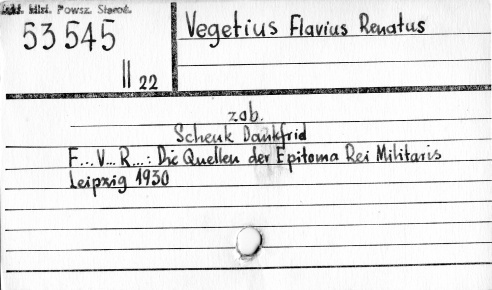 Hist. Powsz. Staroż.
53 545
II 22
Vegetius Flavius Renatus
zob.
Schenk Dankfrid
F... V... R...: Die Quellen der Epitoma Rei Militaris
Leipzig 1930